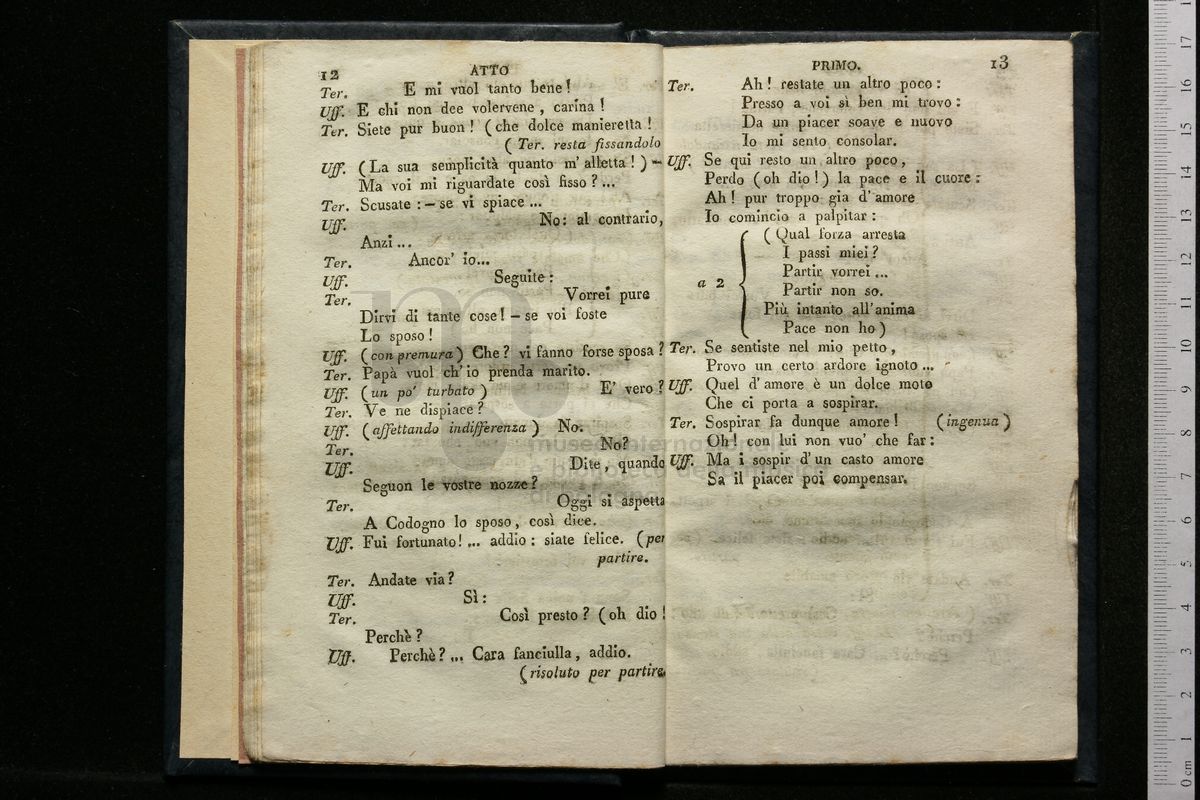 12
ATTO
Ter. E mi vuol tanto bene!
Uff. E chi non dee volervene, carina!
Ter. Siete pur buon! (che dolce manieretta!
(Ter. resta fissandolo
Uff. (La sua semplicità quanto m' alletta!) —
Ma voi mi riguardate così fisso?...
Ter. Scusate: — se vi spiace...
Uff. No: al contrario,
Anzi...
Ter. Ancor' io...
Uff. Seguite:
Ter. Vorrei pure
Dirvi di tante cose! — se voi foste
Lo sposo!
Uff. (con premura) Che? vi fanno forse sposa?
Ter. Papà vuol ch' io prenda marito.
Uff. (un po' turbato) E' vero?
Ter. Ve ne dispiace?
Uff. (affettando indifferenza) No.
Ter. No?
Uff. Dite, quando
Seguon le vostre nozze?
Ter. Oggi si aspetta
A Codogno lo sposo, così dice.
Uff. Fui fortunato!... addio: siate felice. (per
partire.
Ter. Andate via?
Uff. Sì:
Ter. Così presto? (oh dio!
Perchè?
Uff. Perchè?... Cara fanciulla, addio.
(risoluto per partire
PRIMO.
13
Ter. Ah! restate un altro poco:
Presso a voi sì ben mi trovo:
Da un piacer soave e nuovo
Io mi sento consolar.
Uff. Se qui resto un altro poco,
Perdo (oh dio!) la pace e il cuore:
Ah! pur troppo gia d' amore
Io comincio a palpitar:
(Qual forza arresta
I passi miei?
Partir vorrei...
a 2 Partir non so.
Più intanto all' anima
Pace non ho)
Ter. Se sentiste nel mio petto,
Provo un certo ardore ignoto...
Uff. Quel d' amore è un dolce moto
Che ci porta a sospirar.
Ter. Sospirar fa dunque amore! (ingenua)
Oh! con lui non vuo' che far:
Uff. Ma i sospir d' un casto amore
Sa il piacer poi compensar.
museo internazionale
e biblioteca della musica
0 cm 1 2 3 4 5 6 7 8 9 10 11 12 13 14 15 16 17